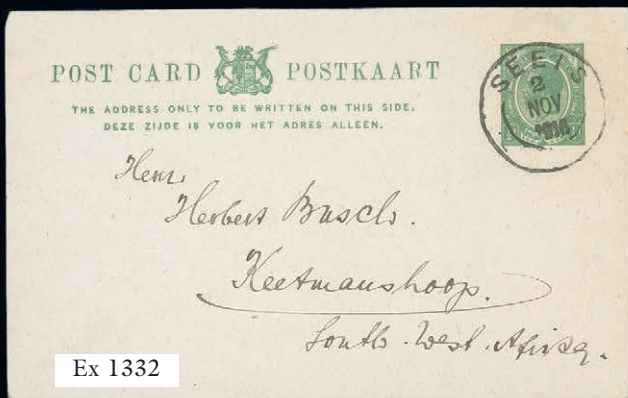 POST CARD POSTKAART
THE ADDRESS ONLY TO BE WRITTEN ON THIS SIDE.
DEZE ZIJDE IS VOOR HET ADRES ALLEEN.
SEEIS
2
NOV
Herrn
Herbert Busch.
Keetmanshoop.
South. West. Africa.
Ex 1332